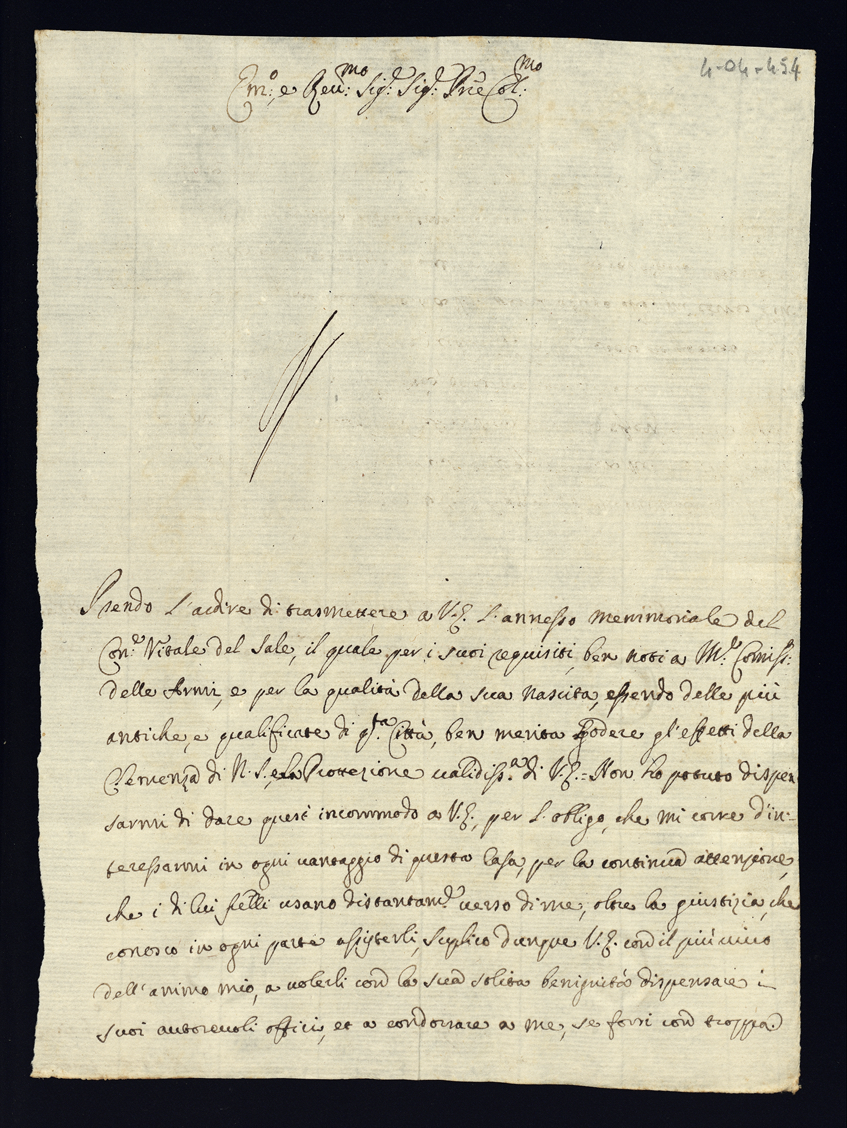 4-04-454
Em:o e Reu:mo Sig:r Sig:r Prne Col:mo
Prendo l'ardire di trasmettere a V.E. l'annesso memmoriale del
Con:e Vitale del Sale, il quale per i suoi requisiti, ben noti a M:r Comiss:
delle Armi, e per la qualità della sua nascita, essendo delle più
antiche, e qualificate di q.ta Città, ben merita godere gl'effetti della
Clemenza di N.S. e la Protezione ualidiss.a di V.E. = Non ho potuto dispen
sarmi di dare quest'incommodo a V.E., per l'obligo, che mi corre d'in:=
teressarmi in ogni uantaggio di questa Casa, per la continua attenzione,
che i di lui fratelli usano distantam.e uerso di me, oltre la giustizia, che
conosco in ogni parte assisterli, suplico dunque V.E. con il più uiuo
dell'animo mio, a uolerli con la sua solita benignità dispensare i
suoi autoreuoli officii, et a condonare a me, se forsi con troppa